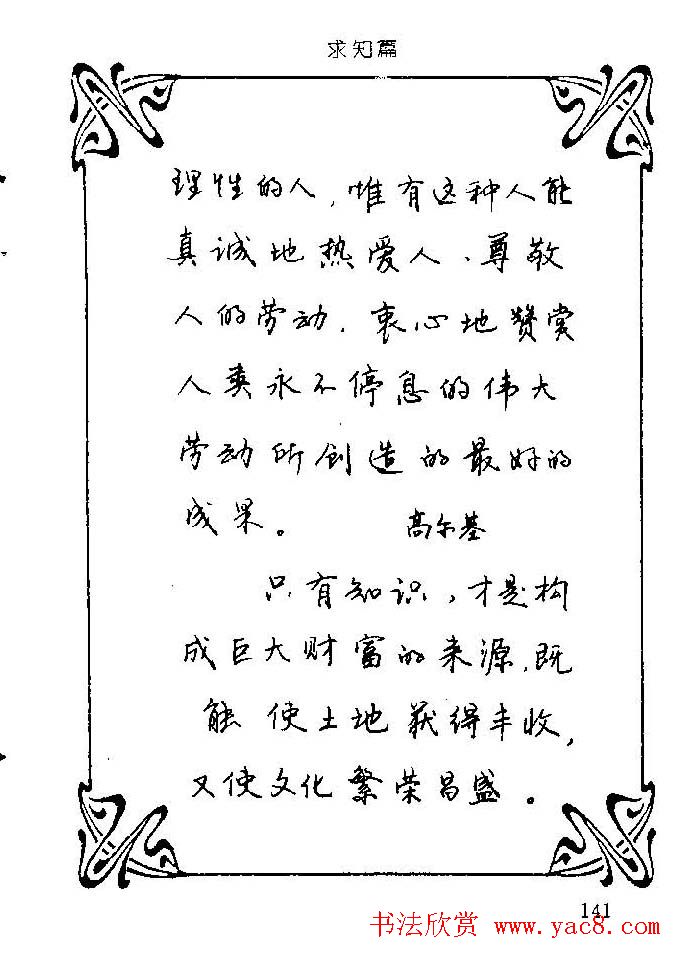 求知篇
理性的人，惟有这种人能
真诚地热爱人、尊敬
人的劳动，衷心地赞赏
人类永不停息的伟大
劳动所创造的最好的
成果。 高尔基
只有知识，才是构
成巨大财富的来源，既
能使土地获得丰收，
又使文化繁荣昌盛。
141
书法欣赏 www.yac8.com